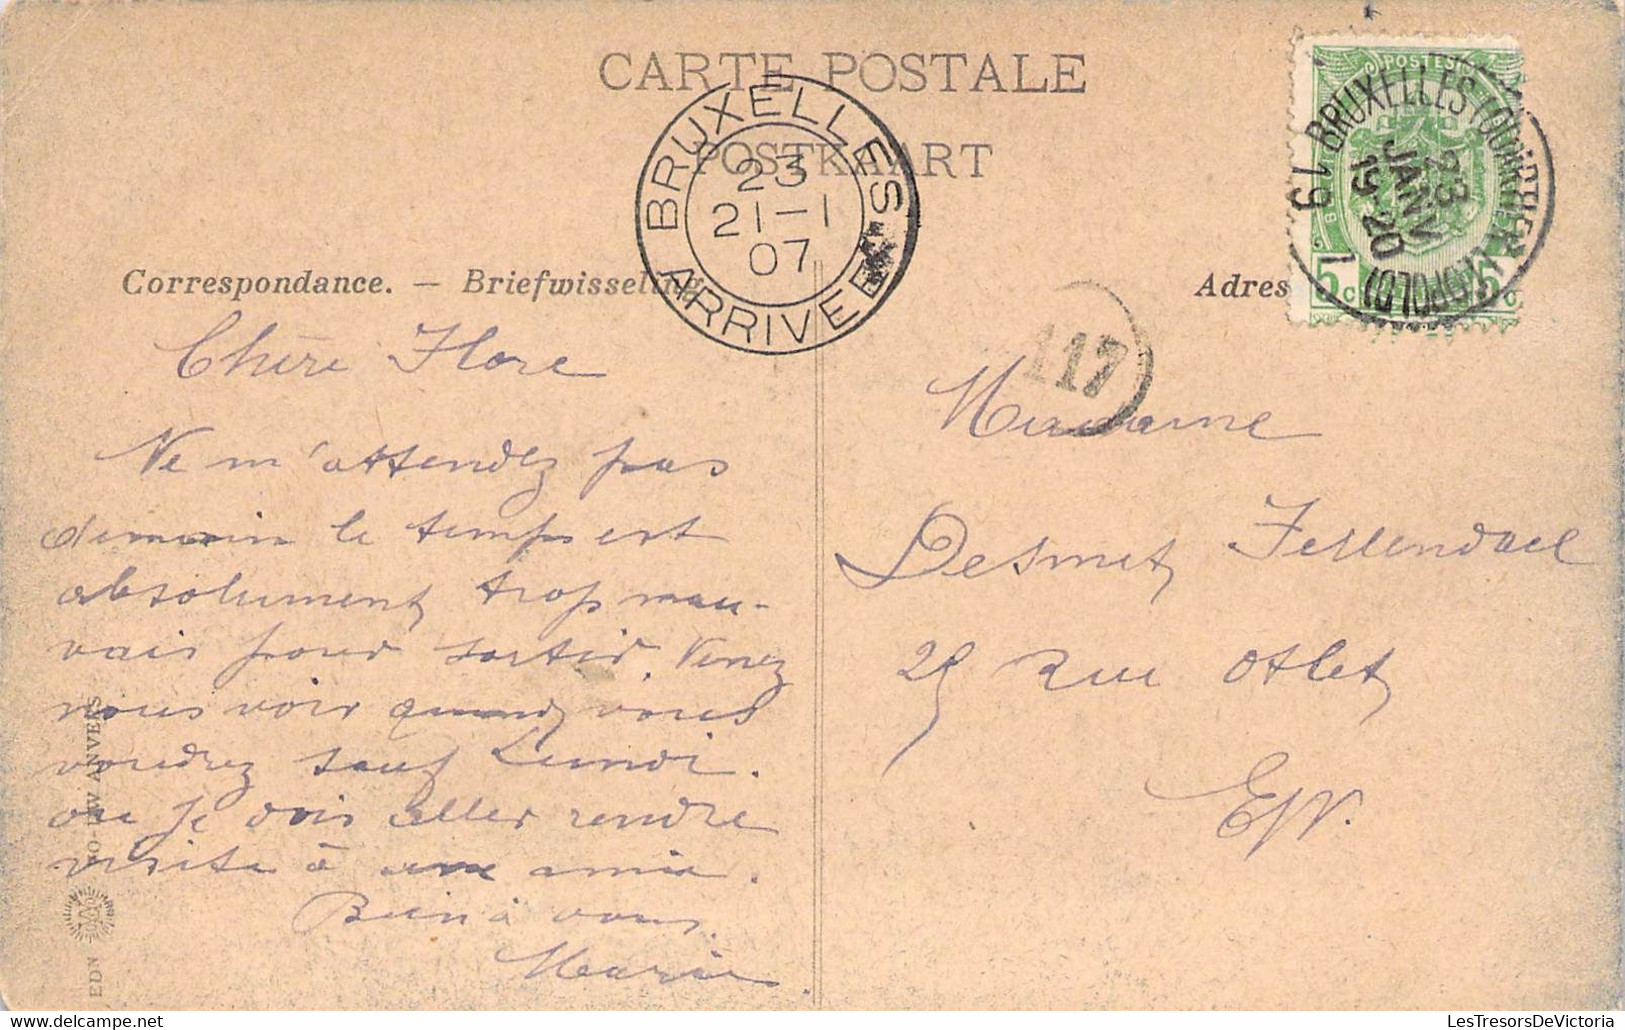 CARTE POSTALE
POSTKAART
BRUXELLES
23
21-1
07
ARRIVEE
POSTES
BRUXELLES (QUARTIER LÉOPOLD)
23
JANV
19-20
1
5c 5c
Correspondance. — Briefwisseling
Adres
117
Chère Flore
Ne m'attendez pas
demain le temps est
absolument trop mau-
vais pour sortir. Venez
nous voir quand vous
voudrez sauf Lundi.
ou je dois aller rendre
visite à une amie.
Bien à vous.
Maria
Madame
Desmet
25 Rue Otlet
E/V.
ANVERS
EDN
LesTresorsDeVictoria